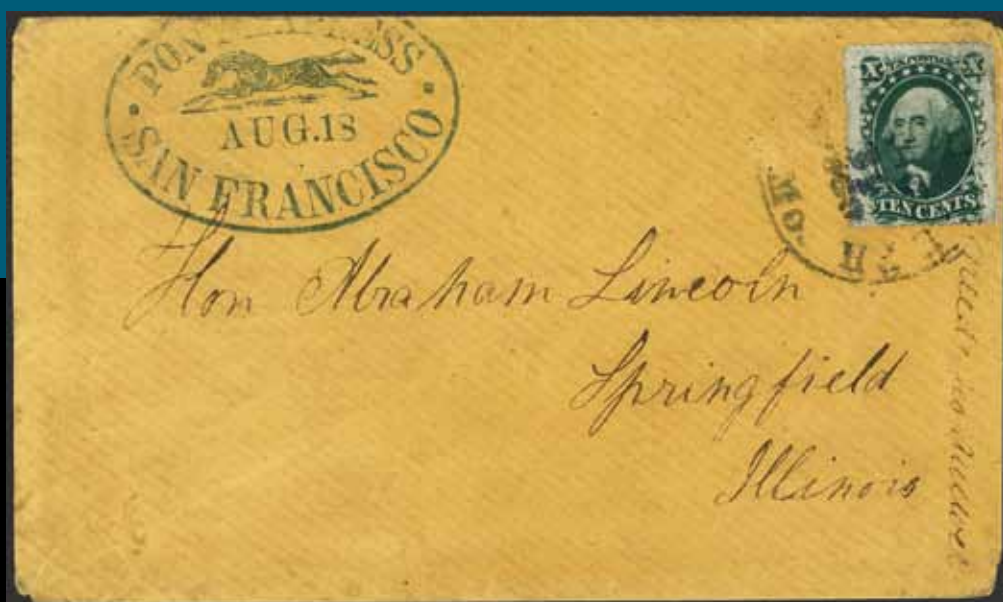 PONY EXPRESS
AUG.18
SAN FRANCISCO
X X
TEN CENTS
Mo.
Hon Abraham Lincoln
Springfield
Illinois